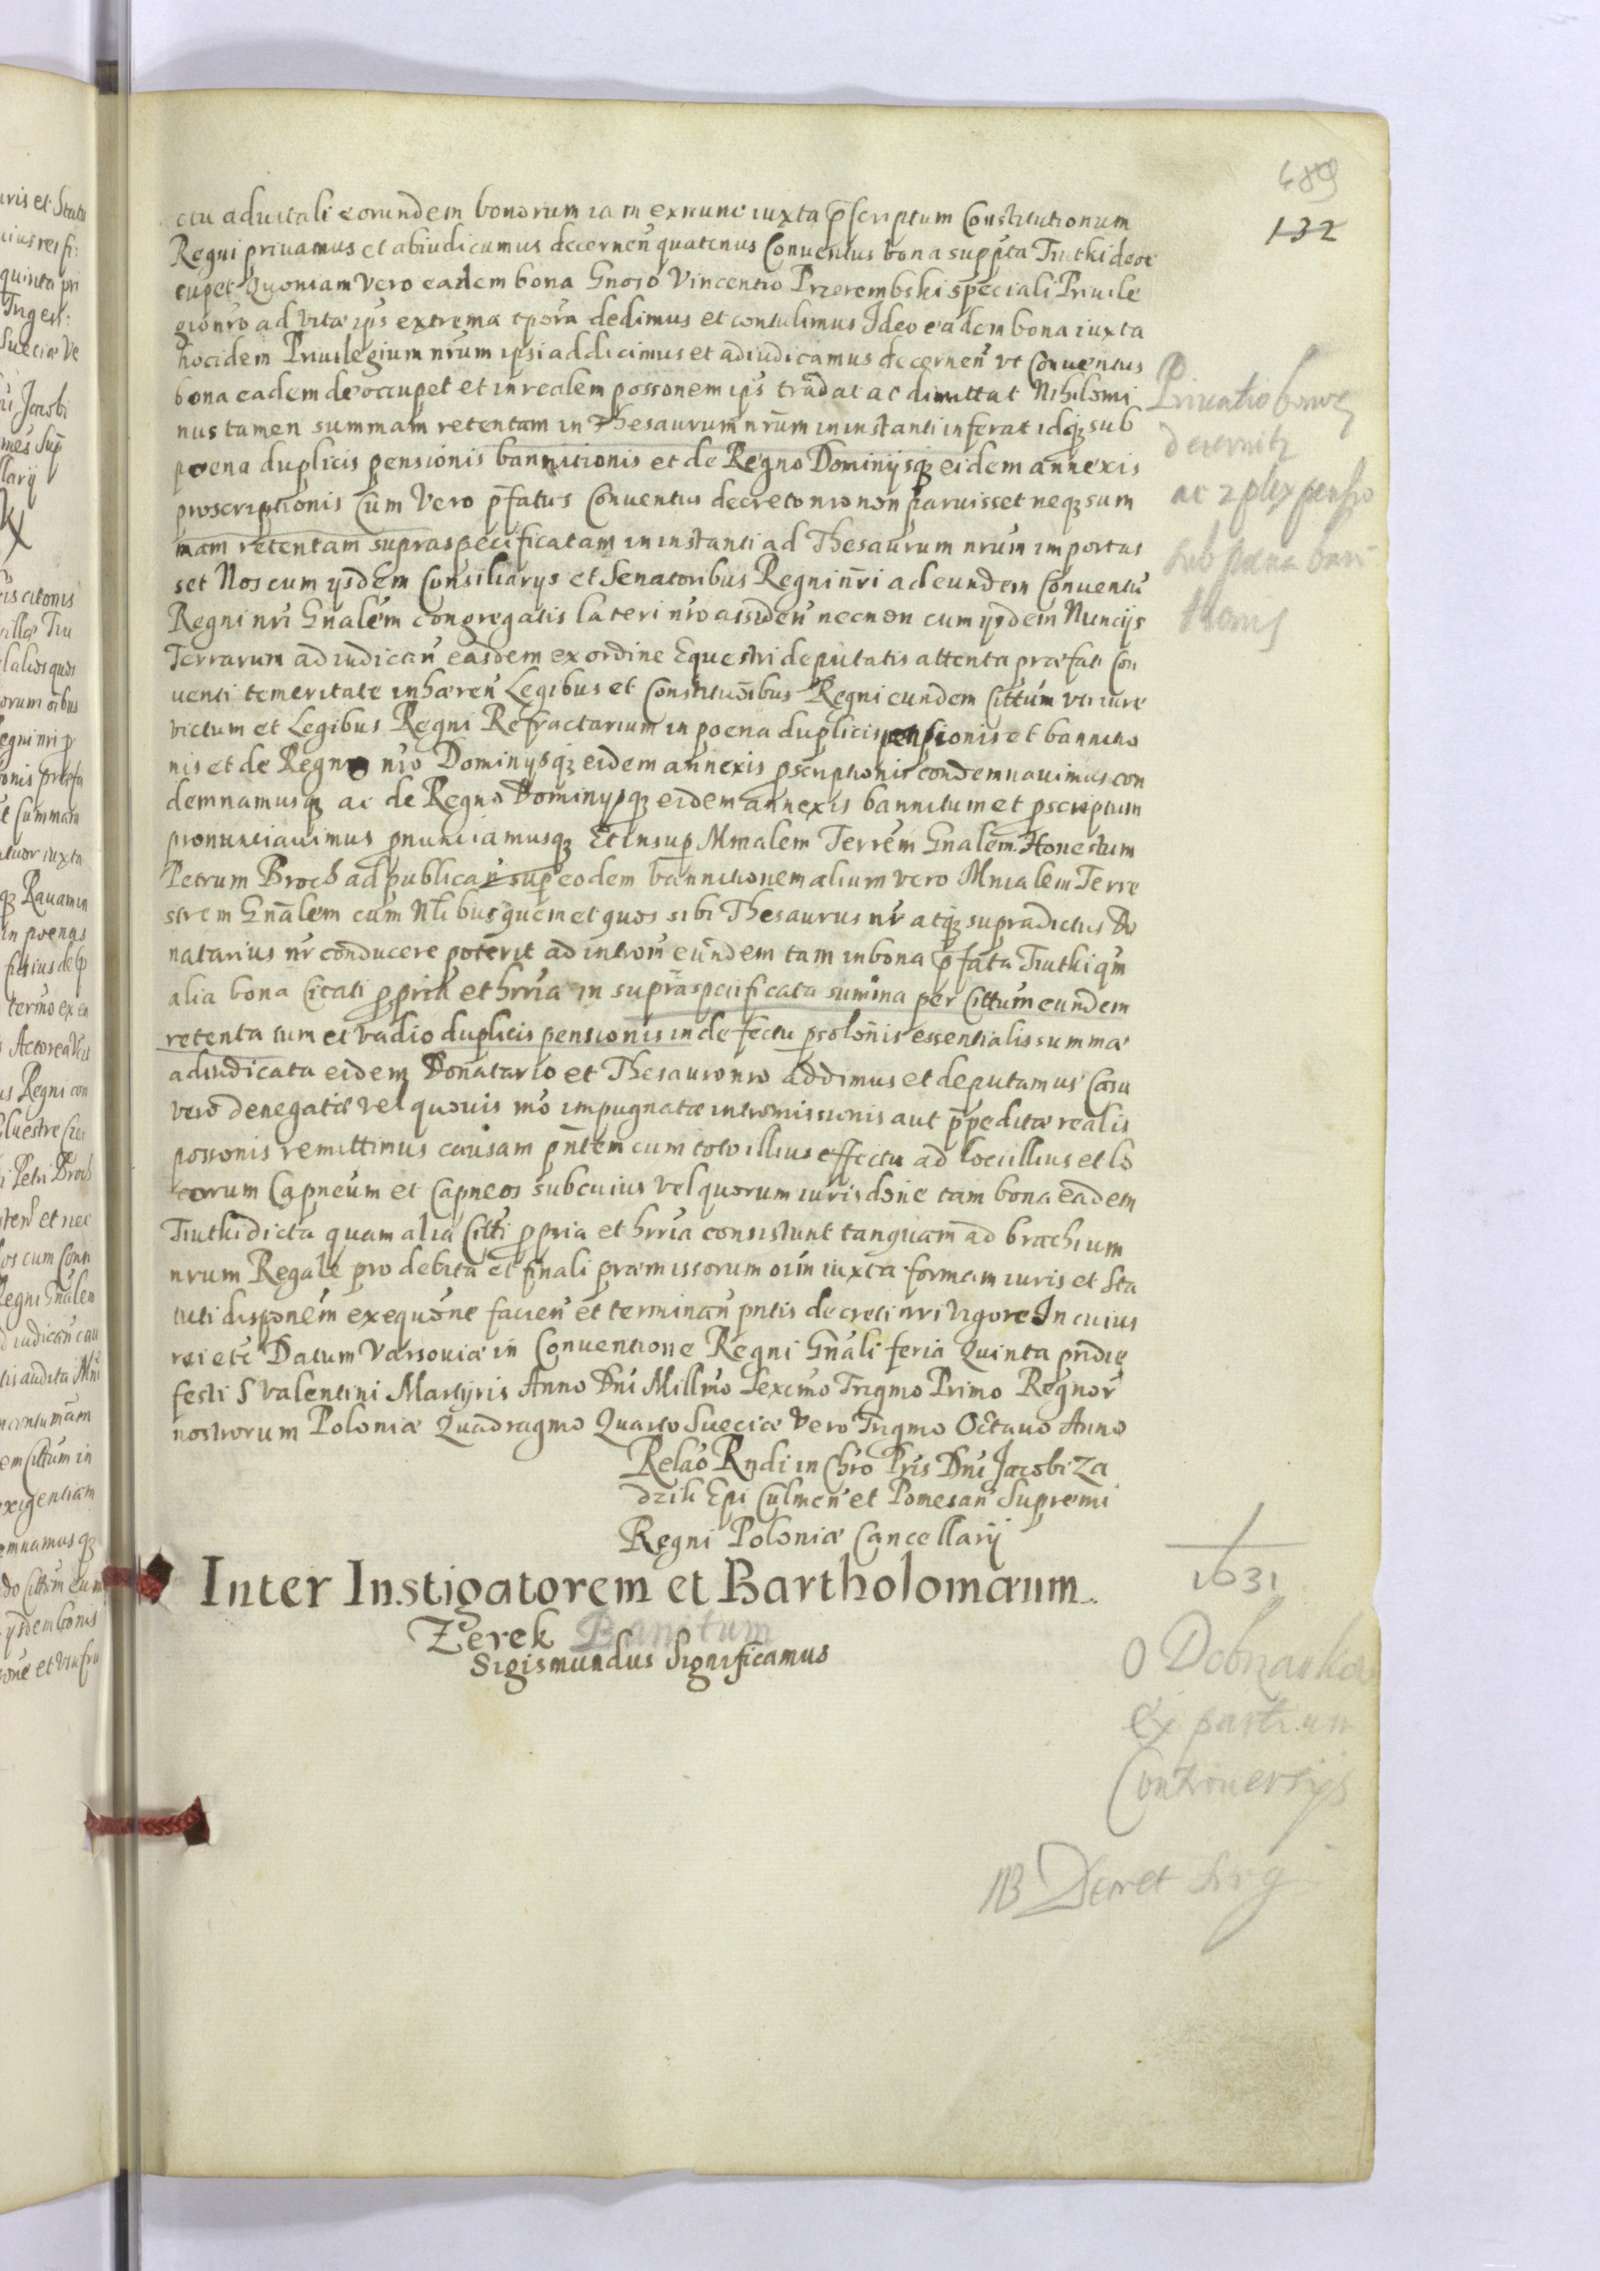 689
132
ctu aduitali eorundem bonorum iam exnunc iuxta p̄scriptum Constitutionum
Regni priuamus et abiudicamus decerneñ quatenus Conuentus bona suppta Tiutki deoc
cupet Quoniam vero eadem bona Gnoso Vincentio Przerembski speciali Priuile
gio nro ad vitæ ips extrema tpora dedimus et contulimus Ideo eadem bona iuxta
hocidem Priuilegium nrum ipsi addicimus et adiudicamus decerneñ vt Conuentus
bona eadem deoccupet et in realem possonem ips tradat ac dimittat Nihilomi
nus tamen summam retentam in Thesaurum nrum in instanti inferat idq₃ sub
poena duplicis pensionis bannitionis et de Regno Dominijsq₃ eidem annexis
proscriptionis Cum Vero p̄fatus Conuentus decreto nro non paruisset neq₃ sum
mam retentam supraspecificatam in instanti ad Thesaurum nrum importas
set Nos cum ijsdem Consiliarys et Senatoribus Regni nri ad eundem Conuentũ
Regni nri Gnalem congregatis lateri nro assideñ necnon cum ijsdem Nuncijs
Terrarum ad iudicañ easdem ex ordine Equestri deputatis attenta præfati Con
uenti temeritate inhæreñ Legibus et Constituõibus Regni eundem Cittum vti iure
victum et Legibus Regni Refractarium in poena duplicis pensionis et bannitio
nis et de Regno nro Dominijsq₃ eidem annexis pscriptionis condemnauimus con
demnamusq₃ ac de Regno Dominijsq₃ eidem annexis bannitum et pscriptum
pronunciauimus pnunciamusq₃ Et insup Mnialem Terrem Gnalem Honestum
Petrum Broch ad publicañ sup eodem bannitionem alium vero Mnialem Terre
strem Gnalem cum Nlibus quem et quos sibi Thesaurus nr atq₃ supradictus Do
natarius nr conducere poterit ad introm eundem tam in bona p̄fata Tiutki qm
alia bona Citati ppria et hrria in supraspecificata summa per Cittum eundem
retenta tum et vadio duplicis pensionis in defectu psolonis essentialis summæ
adiudicata eidem Donatario et Thesauro nro addimus et deputamus Casu
vero denegatæ vel quouis mo impugnatæ intromissionis aut p̄peditæ realis
possonis remittimus causam pntem cum toto illius effectu ad loci illius et lo
corum Capneum et Capneos sub cuius vel quorum iurisdone tam bona eadem
Tiutki dicta quam alia Citti ppria et hrria consistunt tanquam ad brachium
nrum Regale pro debita et finali præmissorum oim iuxta formam iuris et Sta
tuti disponem exequone facien et terminañ pntis decreti nri vigore In cuius
rei etc Datum Varsouiæ in Conuentione Regni Gnali feria Quinta pridie
festi S Valentini Martyris Anno Dni Millmo Sexcmo Trigmo Primo Regnor
nostrorum Poloniæ Quadragmo Quarto Sueciæ vero Trigmo Octauo Anno
Relao Rndi in Chro Pris Dni Jacobi Za
dzik Epi Culmen et Pomesan Supremi
Regni Poloniæ Cancellarij
Inter Instigatorem et Bartholomæum
Zerek Banitum
Sigismundus Significamus
Priuatio bonor
decernitr
ac 2plex pensio
sub pæna bani
tionis
1631
O Dobrauka
ex partium
Controuersijs
NB Decret